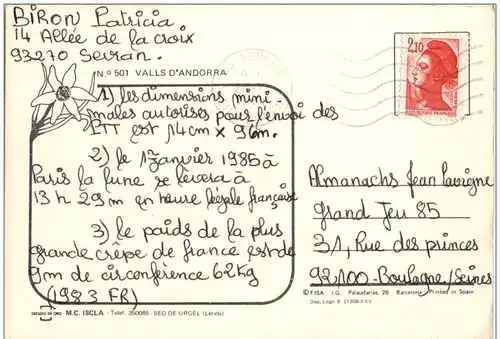 BIRON Patricia
14 Allée de la croix
93270 Sevran.
N.º 501 VALLS D'ANDORRA
1) les dimensions mini-
males autorisés pour l'envoi des
PTT est 14cm x 9cm.
2) le 1 janvier 1985 à
Paris la lune se lèvera à
13 h 29 m en heure légale française
3) le poids de la plus
grande crêpe de france est de
9m de circonférence 62kg
(1983 FR)
2,10
REPUBLIQUE FRANÇAISE
Almanachs Jean Lavigne
Grand Jeu 85
31, Rue des princes
92100-Boulogne/Seines
ESCUDO DE ORO
M.C. ISCLA - Telef. 350085 - SEO DE URGEL (Lérida)
© FISA I.G. Palaudarias, 26 - Barcelona Printed in Spain
Dep. Legal B. 21358-XXV